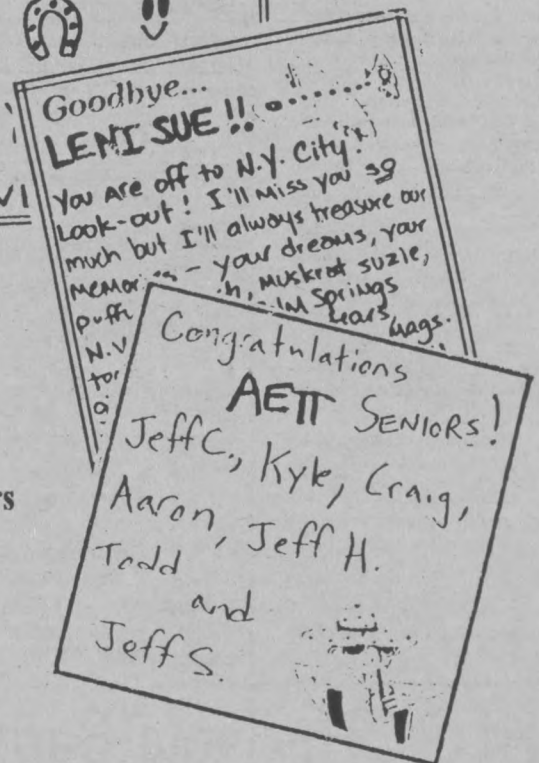 Goodbye...
LENI SUE!!
You are off to N.Y. City!
Look-out! I'll miss you so
much but I'll always treasure our
- your dreams, your
muskrat suzie,
Springs
Congratulations
AEΠ SENIORS!
Jeff C., Kyle, Craig,
Aaron, Jeff H.
Todd
and
Jeff S.